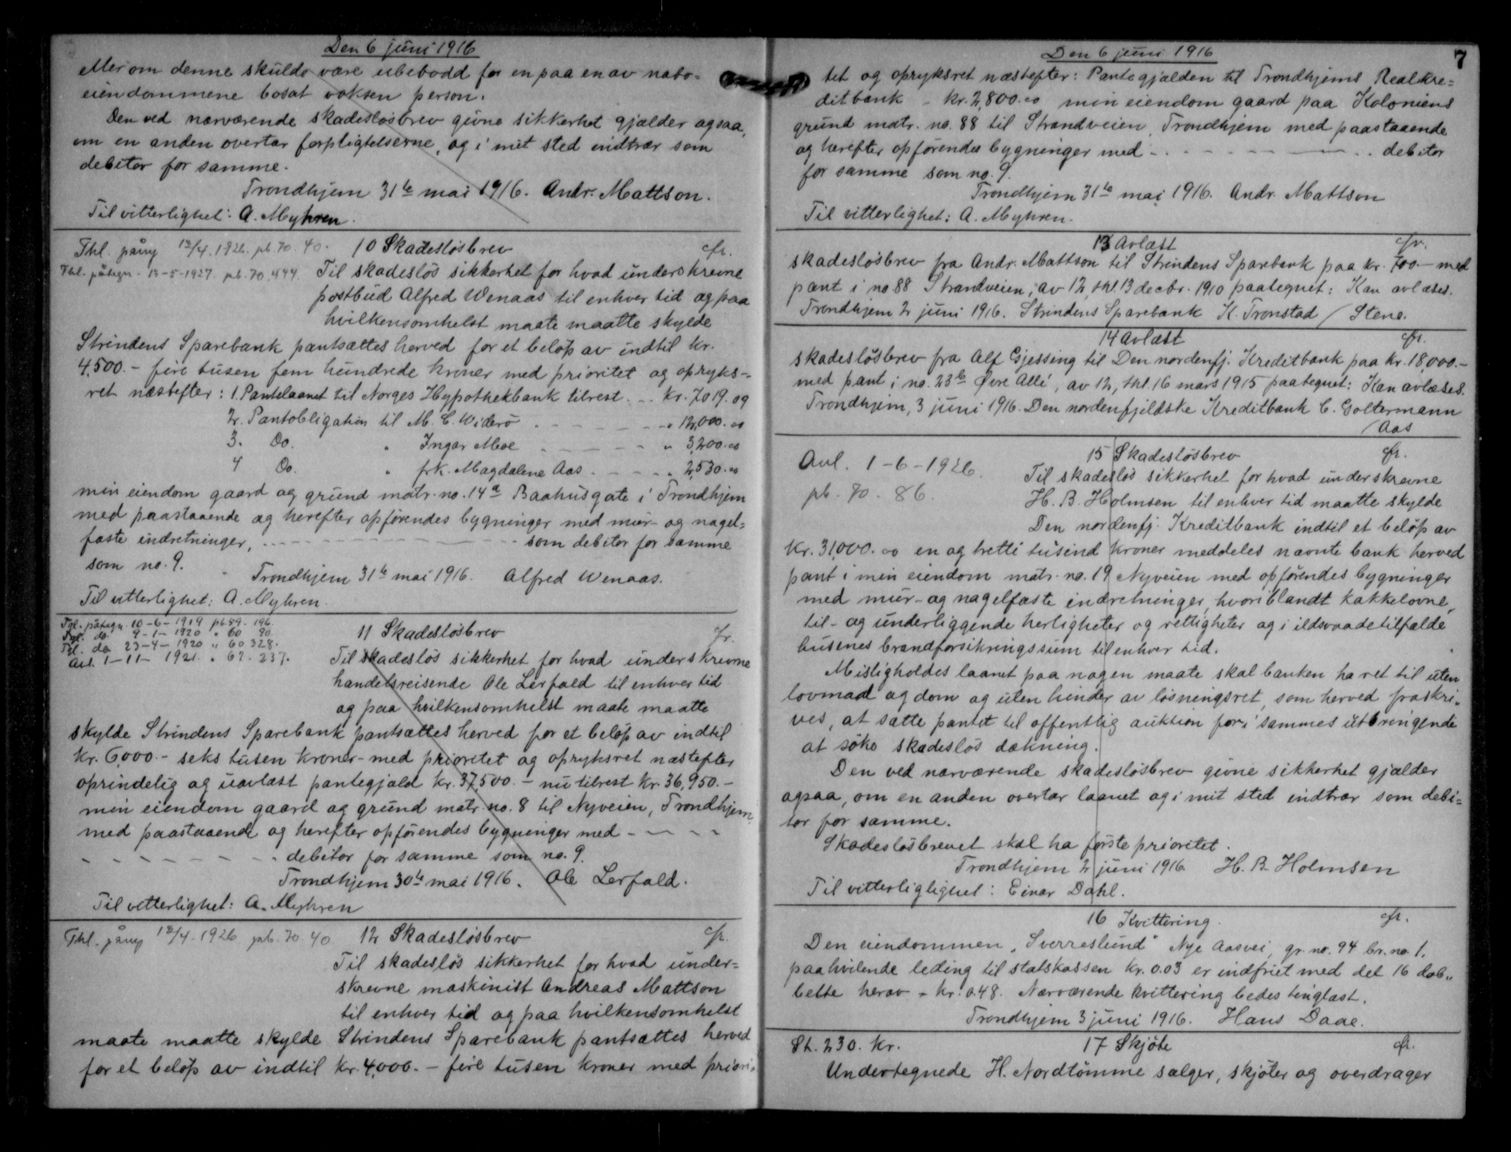 Den 6 juni 1916
eller om denne skulde være ubebodd for en paa en av nabo-
eiendommene bosat voksen person.
Den ved nærværende skadesløsbrev givne sikkerhet gjælder ogsaa,
om en anden overtar forpligtelserne, og i mit sted indtrær som
debitor for samme.
Trondhjem 31te mai 1916. Andr. Mattson.
Til vitterlighet: A. Myhren.
Thl. påny 12/4. 1926. pb. 70. 40. 10 Skadesløsbrev cfr.
Thl. påtegn. 13-5-1927. pb. 70. 444. Til skadesløs sikkerhet for hvad underskrevne
postbud Alfred Wenaas til enhver tid og paa
hvilkensomhelst maate maatte skylde
Strindens Sparebank pantsættes herved for et beløp av indtil kr.
4,500.- fire tusen fem hundrede kroner med prioritet og opryks-
ret næstefter: 1. Pantelaanet til Norges Hypothekbank tilrest . . kr. 7019.09
2. Pantobligation til M. E. Widerö . - - - - - " 12,000.00
3. Do. " Ingar Moe . - - - - " 3,200.00
4 Do. " frk. Magdalene Aas . - - - . " 2,530.00
min eiendom gaard og grund matr. no. 14a Baahusgate i Trondhjem
med paastaaende og herefter opførendes bygninger med mur- og nagel-
faste indretninger, - - - - - - - - - - som debitor for samme
som no. 9. Trondhjem 31te mai 1916. Alfred Wenaas.
Til vitterlighet: A. Myhren.
Tgl. påtegn. 10-6-1919 pb. 59. 196.
Tgl. do. 9-1-1920 " 60 90. 11 Skadesløsbrev cfr.
Tgl. do 23-4-1920 " 60 328.
Avl. 1-11-1921. " 67. 237. Til skadesløs sikkerhet for hvad underskrevne
handelsreisende Ole Lerfald til enhver tid
og paa hvilkensomhelst maate maatte
skylde Strindens Sparebank pantsættes herved for et beløp av indtil
kr. 6,000.- seks tusen kroner- med prioritet og opryksret næstefter
oprindelig og uavlæst pantegjæld kr. 37,500.- nu tilrest kr. 36,950.-
min eiendom gaard og grund matr. no. 8 til Nyveien, Trondhjem,
med paastaaende og herefter opførendes bygninger med - - - -
- - - - - - - . debitor for samme som no. 9.
Trondhjem 30te mai 1916. Ole Lerfald.
Til vitterlighet: A. Myhren
Thl. påny 12/4. 1926 pb. 70 40 12 Skadesløsbrev cfr.
Til skadesløs sikkerhet for hvad under-
skrevne maskinist Andreas Mattson
til enhver tid og paa hvilkensomhelst
maate maatte skylde Strindens Sparebank pantsættes herved
for et beløp av indtil kr. 4,000.- fire tusen kroner med priori-
Den 6 juni 1916 7
tet og opryksret næstefter: Pantegjælden til Trondhjems Realkre-
ditbank - kr. 2,800.00 min eiendom gaard paa Koloniens
grund matr. no. 88 til Strandveien, Trondhjem med paastaaende
og herefter opførendes bygninger med - . - - - - - - . . debitor
for samme som no. 9.
Trondhjem 31te mai 1916. Andr. Mattson
Til vitterlighet: A. Myhren.
13 Avlæst cfr.
skadesløsbrev fra Andr. Mattson til Strindens Sparebank paa kr. 700- med
pant i no 88 Strandveien, av 12, thl. 13 decbr. 1910 paategnet: Kan avlæses.
Trondhjem 2 juni 1916. Strindens Sparebank K. Tronstad / Stene.
14 Avlæst cfr.
skadesløsbrev fra Alf Gjessing til Den nordenfj. Kreditbank paa kr. 18,000.-
med pant i no. 23b Øvre Allé, av 12, thl. 16 mars 1915 paategnet: Kan avlæses.
Trondhjem, 3 juni 1916. Den nordenfjeldske Kreditbank C. Goltermann
/ Aas
15 Skadesløsbrev cfr.
Avl. 1-6-1926. Til skadesløs sikkerhet for hvad underskrevne
pb. 70. 86. H. B. Holmsen til enhver tid maatte skylde
Den nordenfj. Kreditbank indtil et beløp av
kr. 31000.00 en og tretti tusind kroner meddeles nævnte bank herved
pant i min eiendom matr. no. 19 Nyveien med opførendes bygninger
med mur- og nagelfaste indretninger, hvoriblandt kakkelovne,
til- og underliggende herligheter og rettigheter og i ildsvaadetilfælde
husenes brandforsikringssum til enhver tid.
Misligholdes laanet paa nogen maate skal banken ha ret til uten
lovmaal og dom og uten hinder av løsningsret, som herved fraskri-
ves, at sætte pantet til offentlig auktion for i sammes utbringende
at søke skadesløs dækning.
Den ved nærværende skadesløsbrev givne sikkerhet gjælder
ogsaa, om en anden overtar laanet og i mit sted indtrær som debi-
tor for samme.
Skadesløsbrevet skal ha første prioritet.
Trondhjem 2 juni 1916 H. B. Holmsen
Til vitterliglighet: Einar Dahl.
16 Kvittering. cfr.
Den eiendommen "Sverreslund" Nye Aasvei, gr. no. 94 br. no. 1,
paahvilende leding til statskassen kr. 0.03 er indfriet med det 16 dob-
belte herav - kr. 0.48. Nærværende kvittering bedes tinglæst.
Trondhjem 3 juni 1916. Hans Daae.
St. 230. kr. 17 Skjøte cfr.
Undertegnede H. Nordtømme sælger, skjøter og overdrager